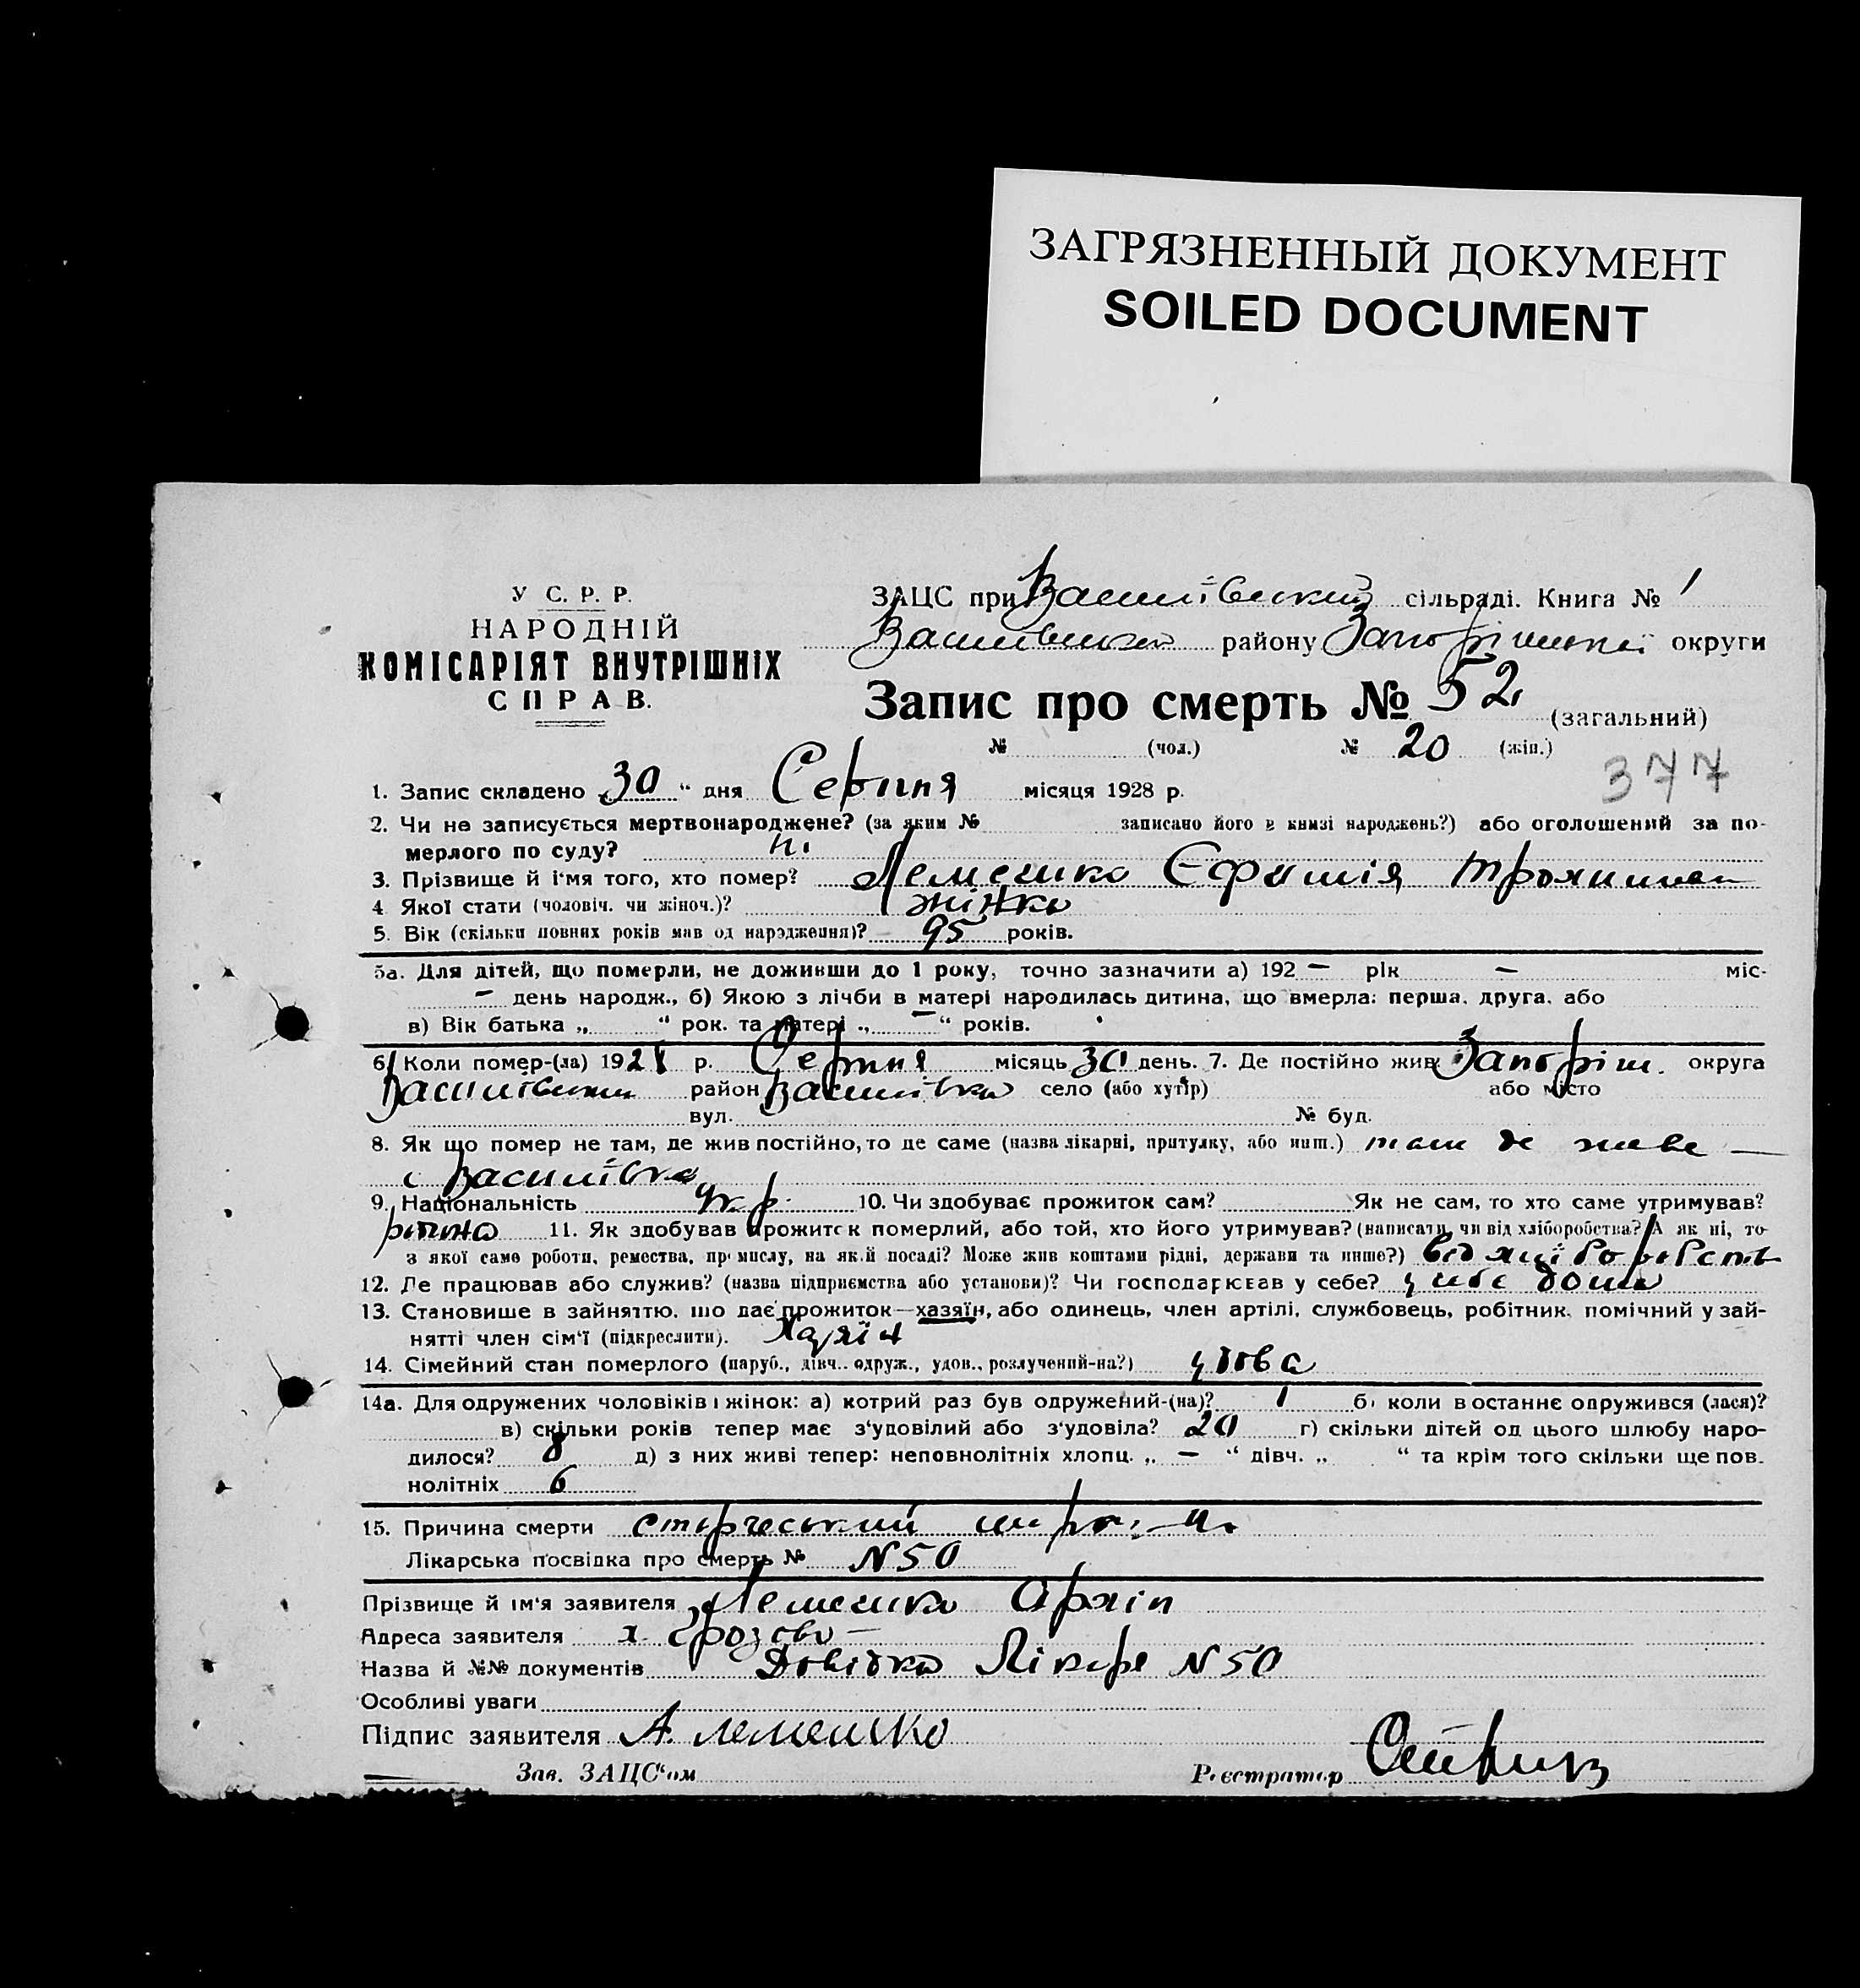 ЗАГРЯЗНЕННЫЙ ДОКУМЕНТ
SOILED DOCUMENT
У С. Р. Р.
НАРОДНІЙ
КОМІСАРІЯТ ВНУТРІШНІХ
СПРАВ.
ЗАЦС при Василівській сільраді. Книга № 1
Василівського району Запорізької округи
Запис про смерть № 52 (загальний)
№ (чол.) № 20 (жін.)
377
1. Запис складено „30“ дня Серпня місяця 1928 р.
2. Чи не записується мертвонароджене? (за яким № записано його в книзі народжень?) або оголошений за по-
мерлого по суду? ні
3. Прізвище й і'мя того, хто помер? Лемешко Єфимія
4 Якої стати (чоловіч. чи жіноч.)? жінка
5. Вік (скільки повних років мав од народження)? 95 років.
5а. Для дітей, що померли, не доживши до 1 року, точно зазначити а) 192 — рік — міс-
— день народж., б) Якою з лічби в матері народилась дитина, що вмерла: перша, друга, або
в) Вік батька „ “ рок. та матері „ — “ років.
6. Коли помер-(ла) 1928 р. Серпня місяць 30 день. 7. Де постійно жив Запоріш. округа
район Василівка село (або хутір) або місто
вул. № буд.
8. Як що помер не там, де жив постійно, то де саме (назва лікарні, притулку, або инш.) там де живе —
с Василівка
9. Національність укр. 10. Чи здобуває прожиток сам? Як не сам, то хто саме утримував?
11. Як здобував прожиток померлий, або той, хто його утримував? (написати, чи від хліборобства? А як ні, то-
з якої саме роботи, ремества, промислу, на якій посаді? Може жив коштами рідні, держави та инше?) від
12. Де працював або служив? (назва підприємства або установи)? Чи господарював у себе? у себе дома
13. Становище в зайняттю, що дає прожиток—хазяїн, або одинець, член артілі, службовець, робітник, помічний у зай-
нятті член сім'ї (підкреслити). Хазяїн
14. Сімейний стан померлого (паруб., дівч., одруж., удов., розлучений-на?) удова
14а. Для одружених чоловіків і жінок: а) котрий раз був одружений-(на)? 1 б) коли востаннє одружився (лася)?
в) скільки років тепер має з'удовілий або з'удовіла? 20 г) скільки дітей од цього шлюбу наро-
дилося? 8 д) з них живі тепер: неповнолітніх хлопц. „ — “ дівч. „ “ та крім того скільки ще пов-
нолітніх 6
15. Причина смерти
Лікарська посвідка про смерть № N 50
Прізвище й ім'я заявителя Лемешко Архіп
Адреса заявителя х.
Назва й №№ документів Довідка Лікаря N 50
Особливі уваги
Підпис заявителя А. Лемешко
Зав. ЗАЦС'ом Реєстратор